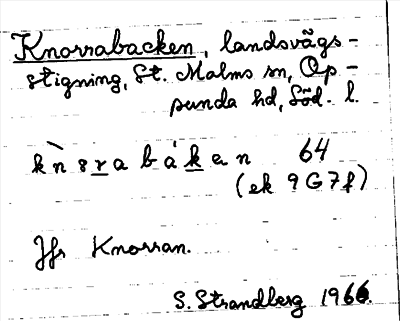 Knorrabacken, landsvägs-
stigning, St. Malms sn, Op-
punda hd, Söd. l.
64
(ek 9G7f)
Jfr Knorran.
S. Strandberg 1966.